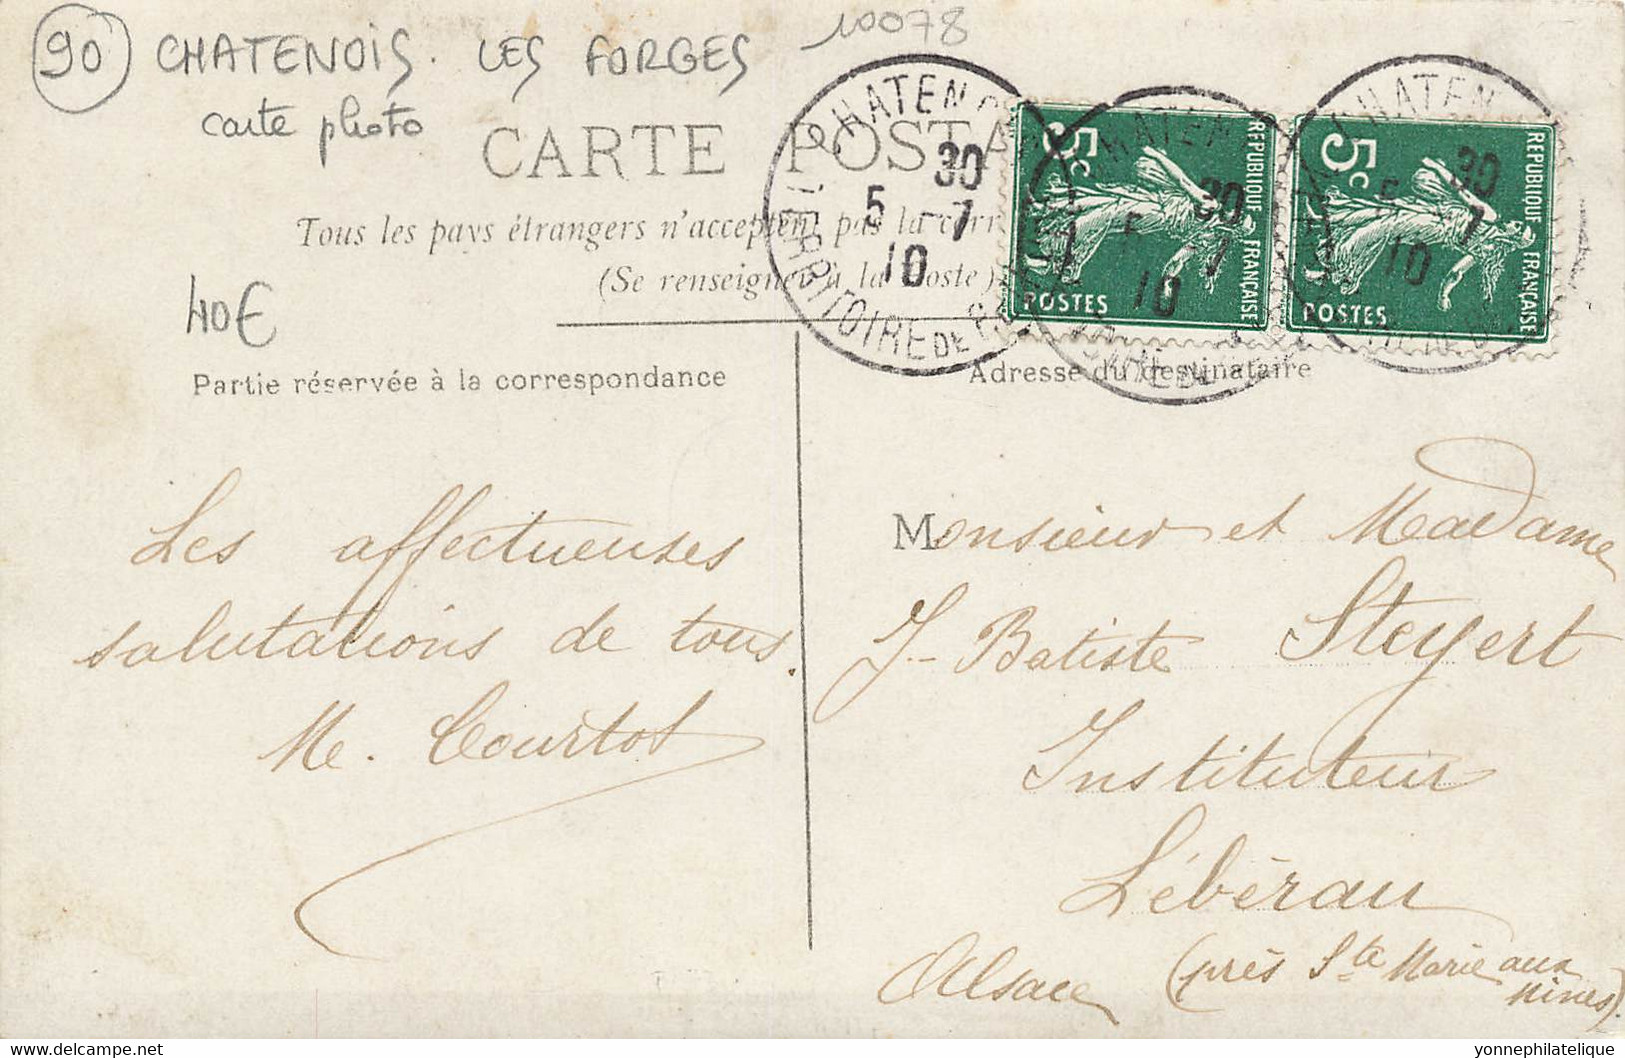 90 CHATENOIS. LES FORGES 10078
carte photo
CARTE POSTA
Tous les pays étrangers n'acceptent pas la corr
(Se renseigner à la Poste)
40€
Partie réservée à la correspondance
Adresse du destinataire
CHATENO
30
5 - 7
10
TERRITOIRE DE
REPUBLIQUE FRANÇAISE
5c
POSTES
30
5 - 7
10
REPUBLIQUE FRANÇAISE
5c
POSTES
30
5 - 7
10
Les affectueuses
salutations de tous.
M. Courtot
Monsieur et Madame
J-Batiste Steyert
Instituteur
Lébérau
Alsace (près Ste Marie aux
Mines).
yonnephilatelique
delcampe.net